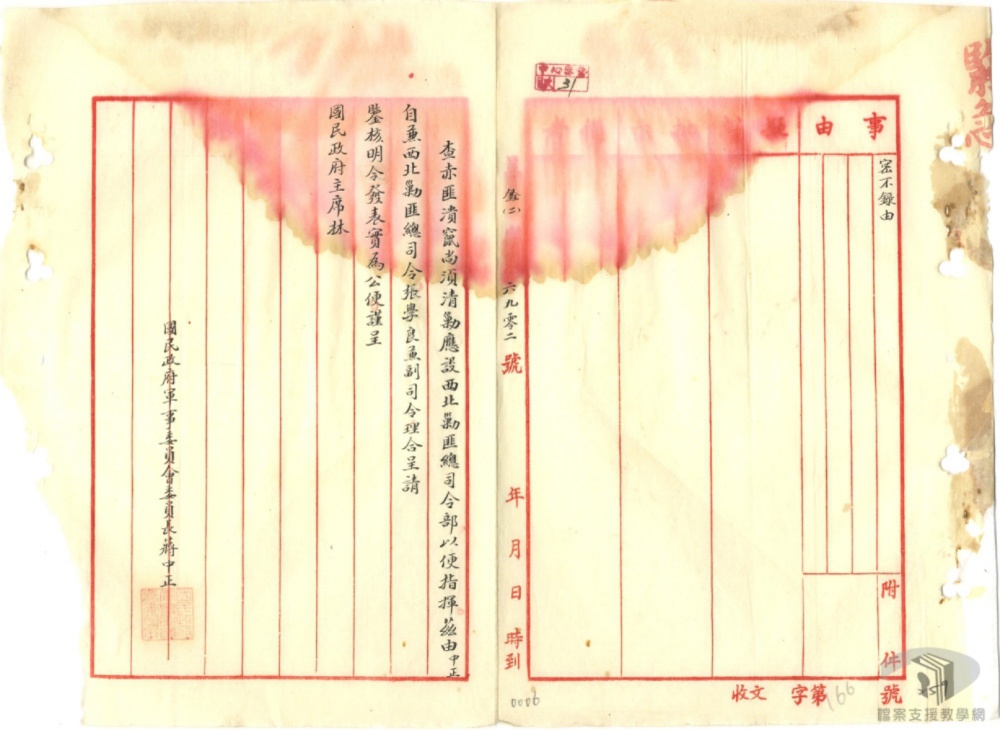 緊急
事由
密不錄由
附件
號
收文 字第166號
259
31
六九零二號
年月日時到
查赤匪潰竄尚須清勦應設西北勦匪總司令部以便指揮茲由中正
自兼西北勦匪總司令張學良兼副司令理合呈請
鑒核明令發表實為公便謹呈
國民政府主席林
國民政府軍事委員會委員長蔣中正
0006
檔案支援教學網